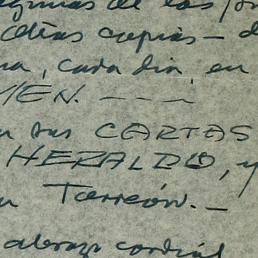 de las
otras copias — d
na, cada día, en
MEN. — — —
sus CARTAS
HERALDO, y
Torreón. —
abrazo cordial